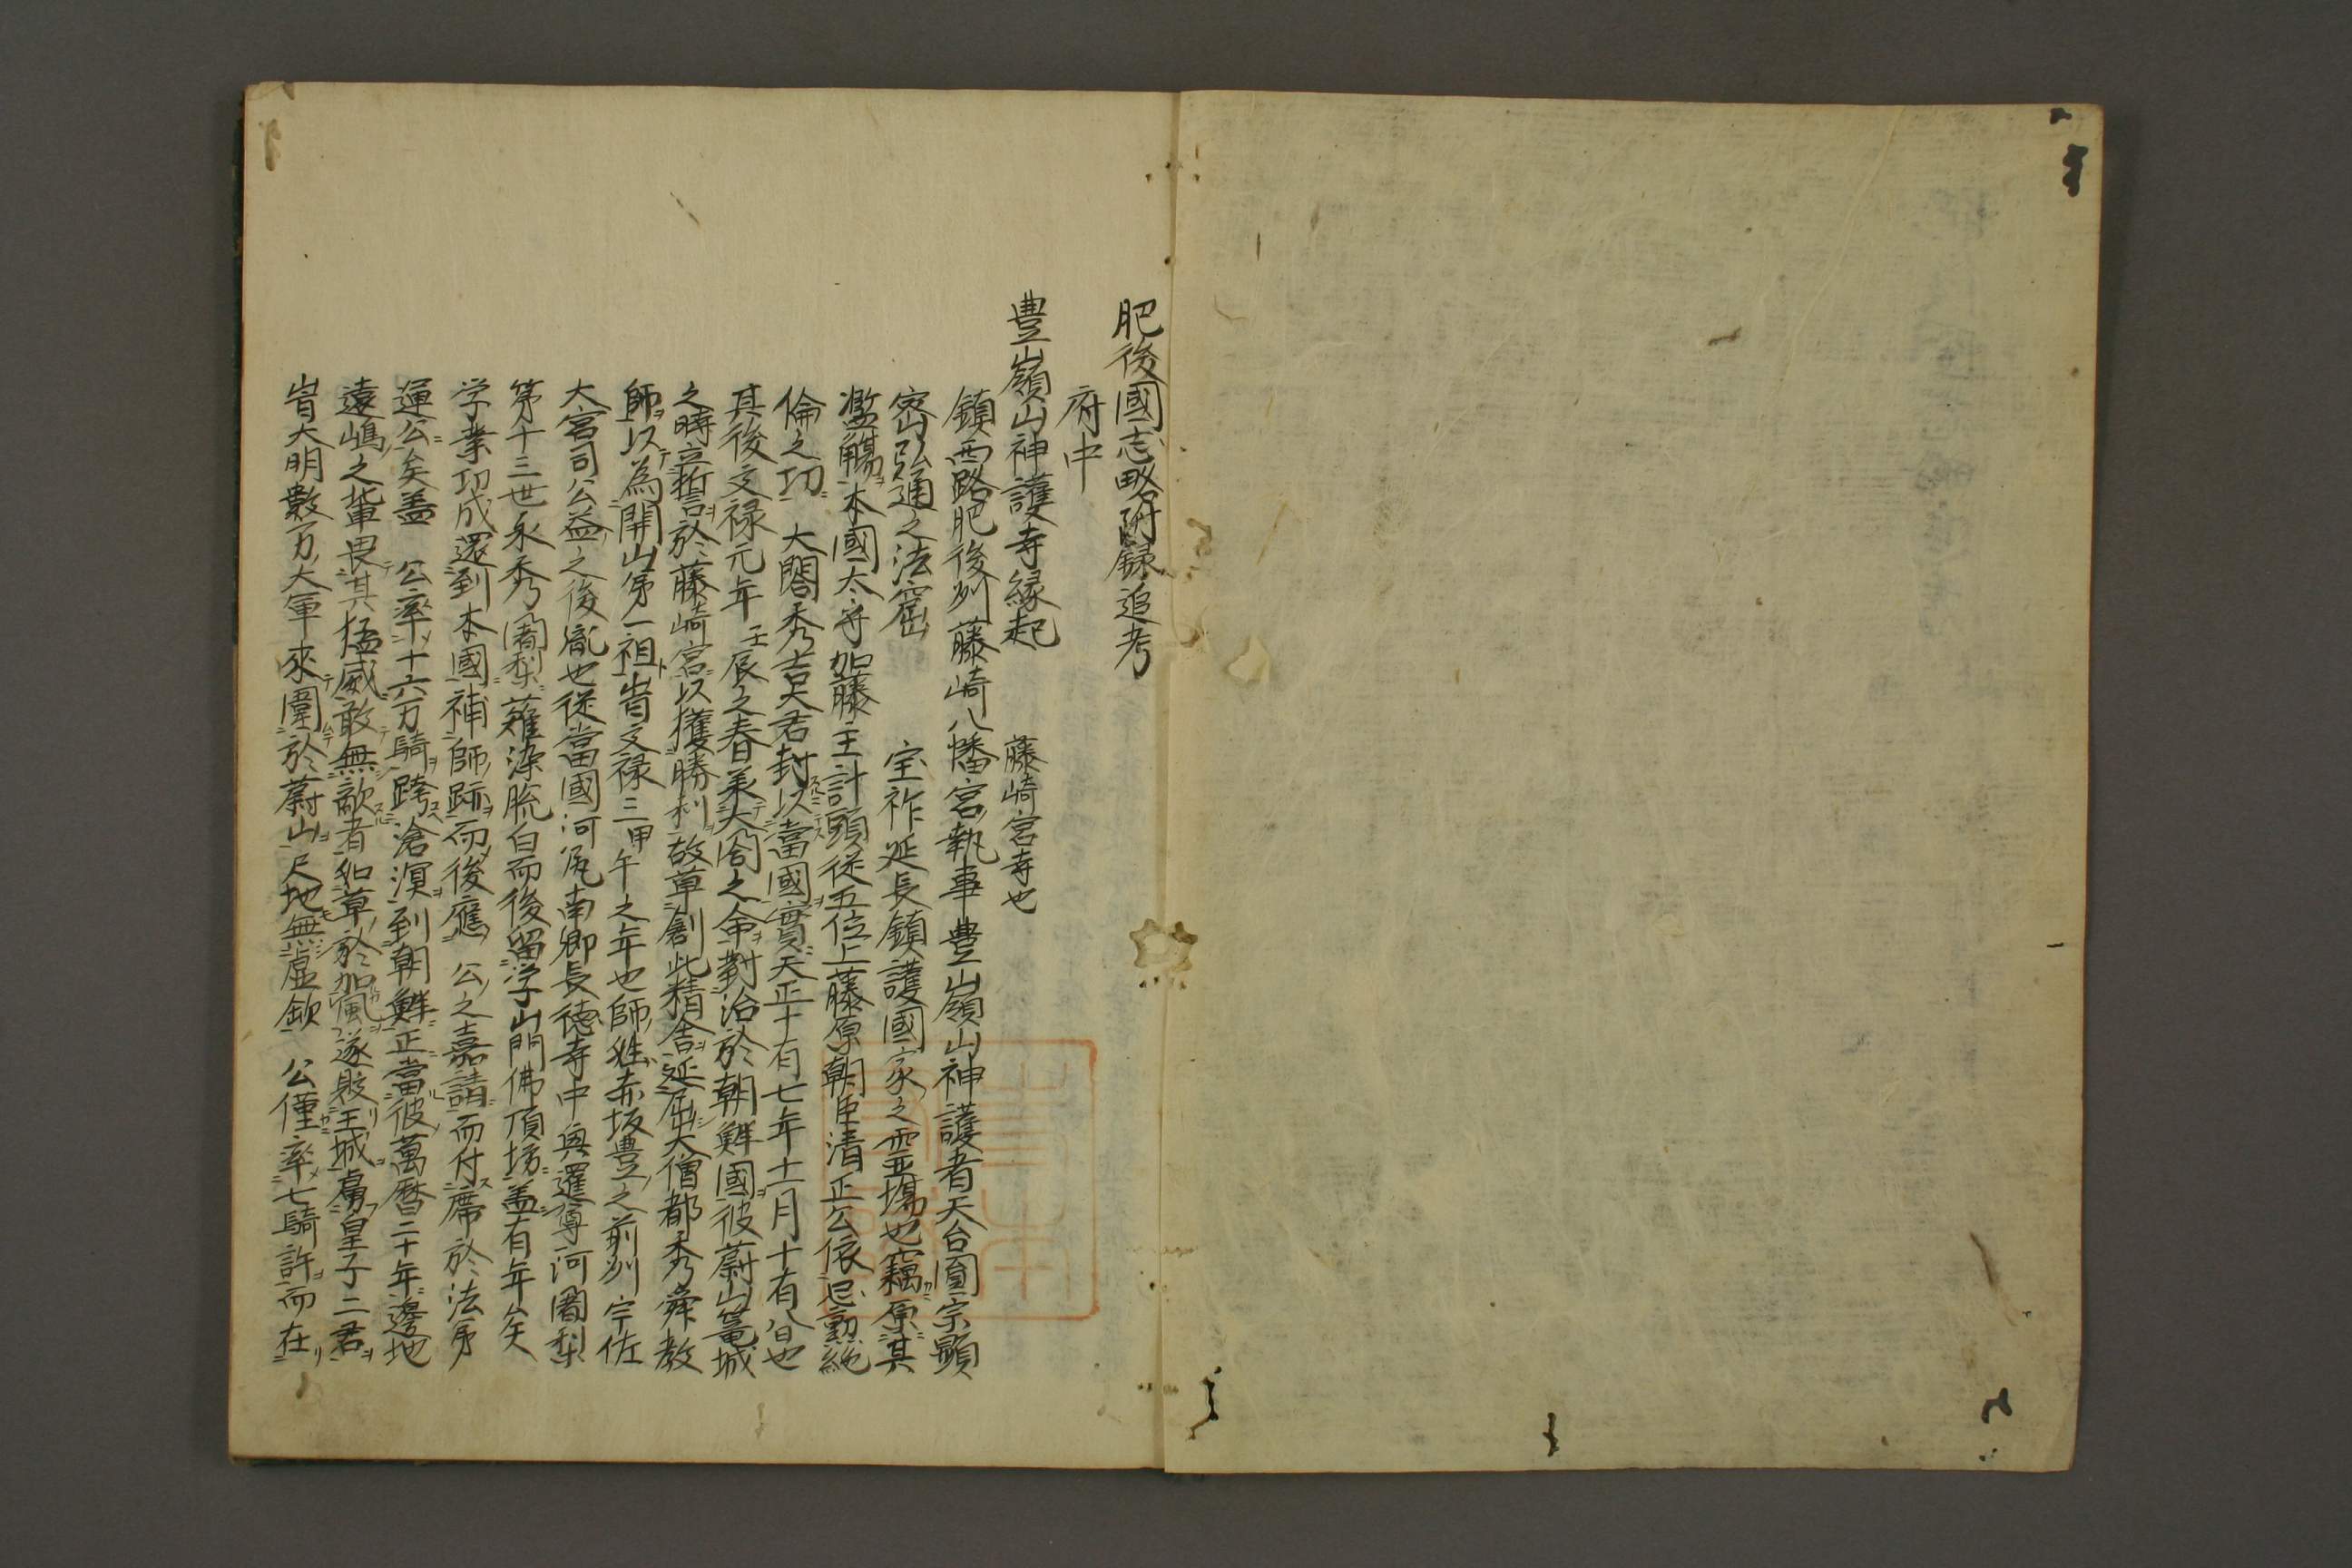 肥後國志畧附録追考
府中
豊嶺山神護寺縁起 藤崎宮寺也
鎮西路肥後州藤崎八幡宮執事豊嶺山神護者天台圓宗顯
密弘通之法窟 宝祚延長鎮護國家之霊場也竊原其
濫觴本國太守加藤主計頭従五位上藤原朝臣清正公依忠勤絶
倫之功 大閤秀吉大君封以當國實天正十有七年十一月十有八日也
其後文禄元年壬辰之春美大閤之命對治於朝鮮國彼蔚山篭城
之時立誓於藤崎宮以獲勝利故草創此精舎延屈大僧都秀舜教
師以為開山第一祖旹文禄三甲午之年也師姓赤坂豊之前州宇佐
大宮司公益之後胤也従當國河尻南郷長徳寺中奥暹尊阿闍梨
第十三世永秀闍梨薙染脱白而後留学山門佛頂坊盖有年矣
学業功成還到本國補師跡而後應 公之嘉請而付席於法弟
運公矣盖 公率十六万騎跨滄溟到朝鮮正當彼萬暦二十年邊地
遠嶋之輩畏其猛威敢無敵者如草於加風遂敗王城虜皇子二君
旹大明數万大軍來圍於蔚山尺地無虚欤 公僅率七騎許而在